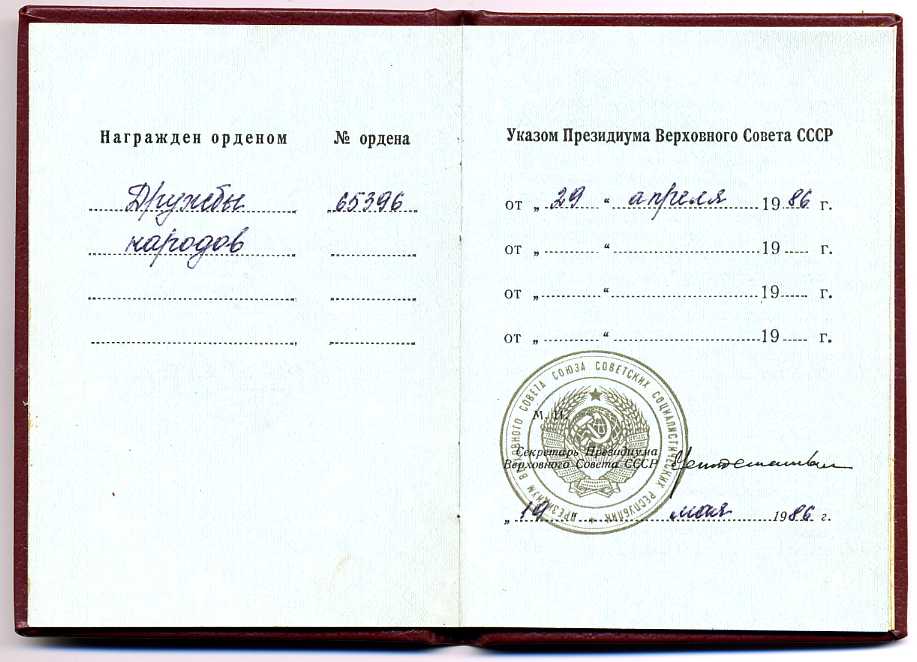 Награжден орденом
№ ордена
Дружбы
65396
народов
Указом Президиума Верховного Совета СССР
от „ 29 “ апреля 1986 г.
от „ “ 19 г.
от „ “ 19 г.
от „ “ 19 г.
М. П.
ПРЕЗИДИУМ ВЕРХОВНОГО СОВЕТА СОЮЗА СОВЕТСКИХ СОЦИАЛИСТИЧЕСКИХ РЕСПУБЛИК
Секретарь Президиума
Верховного Совета СССР
„ 19 мая 1986 г.